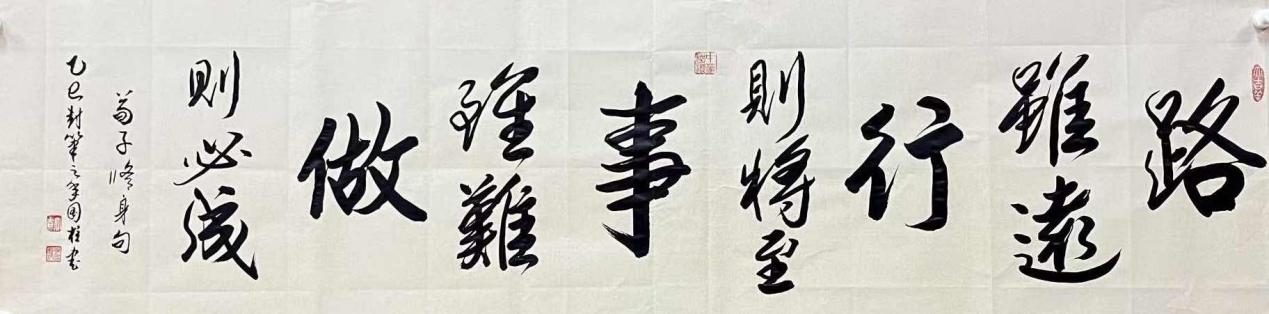 路
雖遠
行
則將至
事
雖難
做
則必成
荀子修身句
乙巳對筆之年國柱書